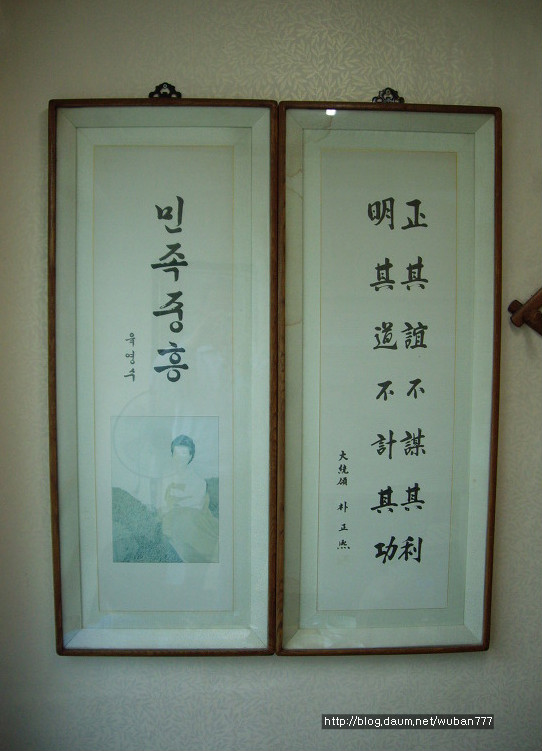 민족중흥
육영수
正其誼不謀其利
明其道不計其功
大統領 朴正熙
http://blog.daum.net/wuban777